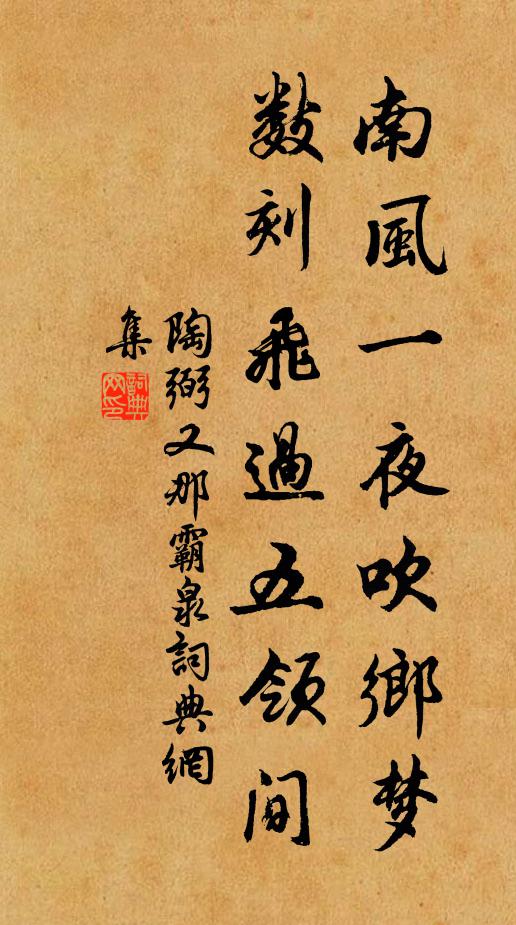 南風一夜吹鄉梦
数刻飛過五領间
陶弼又那霸泉詞典網
集
詞典網印